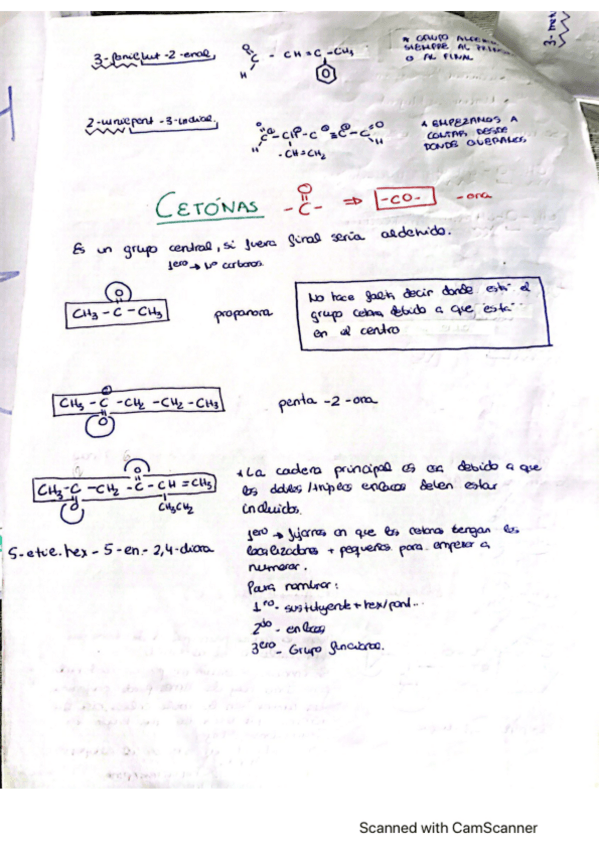 3-fenilbut-2-enal
CH=C-CH₃
H
* GRUPO
SIEMPRE AL
O AL FINAL
3-
2-uninilpent-3-inodial
-CH=CH₂
* EMPEZAMOS A
CONTAR DESDE
DONDE QUERAMOS
CETONAS -C- ⇒ -CO- -ona
O
Es un grupo central, si fuera final sería aldehido.
1ero → Nº carbonos.
O
CH₃-C-CH₃ propanona
No hace falta decir donde está el
grupo cetona debido a que está
en el centro
CH₃-C-CH₂-CH₂-CH₃ penta-2-ona
O
O
CH₃-C-CH₂-C-CH=CH₃
O CH₂CH₂
5-etil.hex-5-en-2,4-diona
* La cadena principal es esa debido a que
los dobles/triples enlaces deben estar
incluidos.
1ero → fijarnos en que las cetonas tengan los
localizadores + pequeños para empezar a
numerar.
Para nombrar:
1ro- sustituyente + hex/pent...
2do- enlaces
3ero- Grupo funcional.
Scanned with CamScanner